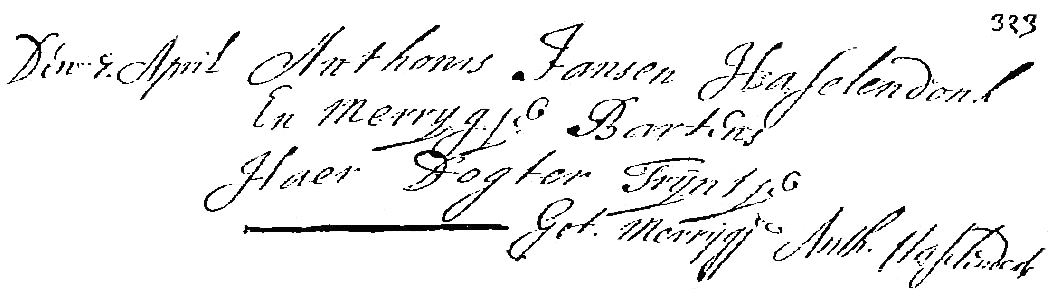 323
Den 5. April Anthonis Jansen Haselendonk
En Merrygje Bartens
Haer Dogter Trÿntje
Get. Merrÿgje Anth. Haselendonk